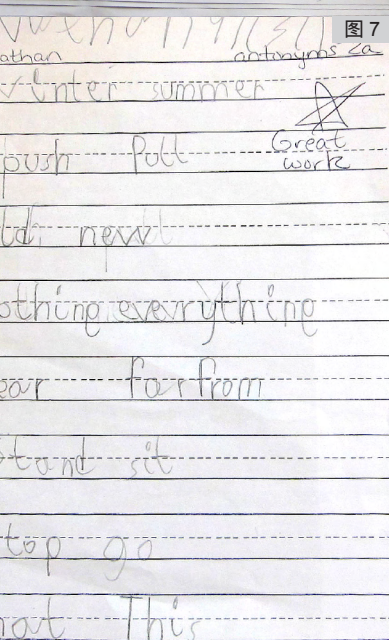 图 7
athan antonyms
winter summer
Great
push Pull
work
ld new
othing everything
ear far from
tand sit
top go
hat This